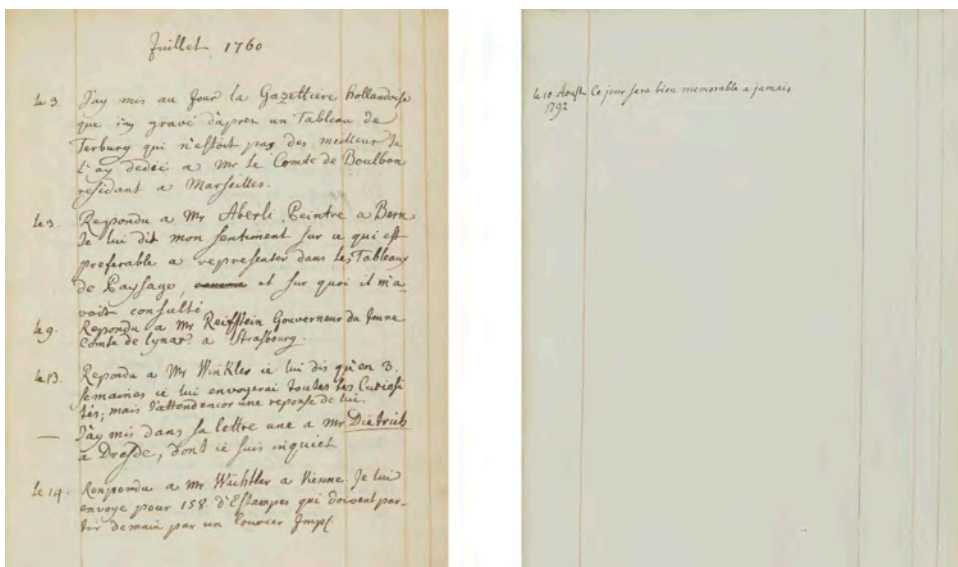 Juillet 1760
le 3. J'ay mis au Jour la Gazettière hollandoise
que i'ay gravé d'apres un Tableau de
Terburg qui n'estoit pas des meilleur Je
l'ay dedié a Mr le Comte de Boulbon
residant a Marseilles.
le 3. Repondu a Mr Aberli Peintre a Bern
Je lui dit mon sentiment sur ce qui est
preferable a representer dans les Tableaux
de Paysage, et sur quoi il m'a
voit consulté
le 9. Repondu a Mr Reiffstein Gouverneur du Jeune
Comte de Lynar a Strasbourg.
le 13. Repondu a Mr Winkler ie lui dis qu'en 3.
semaines ie lui envoyerai toutes ses Curiosi
tés; mais J'attend encor une reponse de lui.
— J'ay mis dans sa lettre une a Mr Dietrich
a Dresde, dont ie suis inquiet
le 14. Ronpondu a Mr Wächtler a Vienne. Je lui
envoye pour 158. d'Estampes qui doivent par-
tir demain par un Courier Imp
le 10. Aoust Ce jour sera bien memorable a jamais
1792